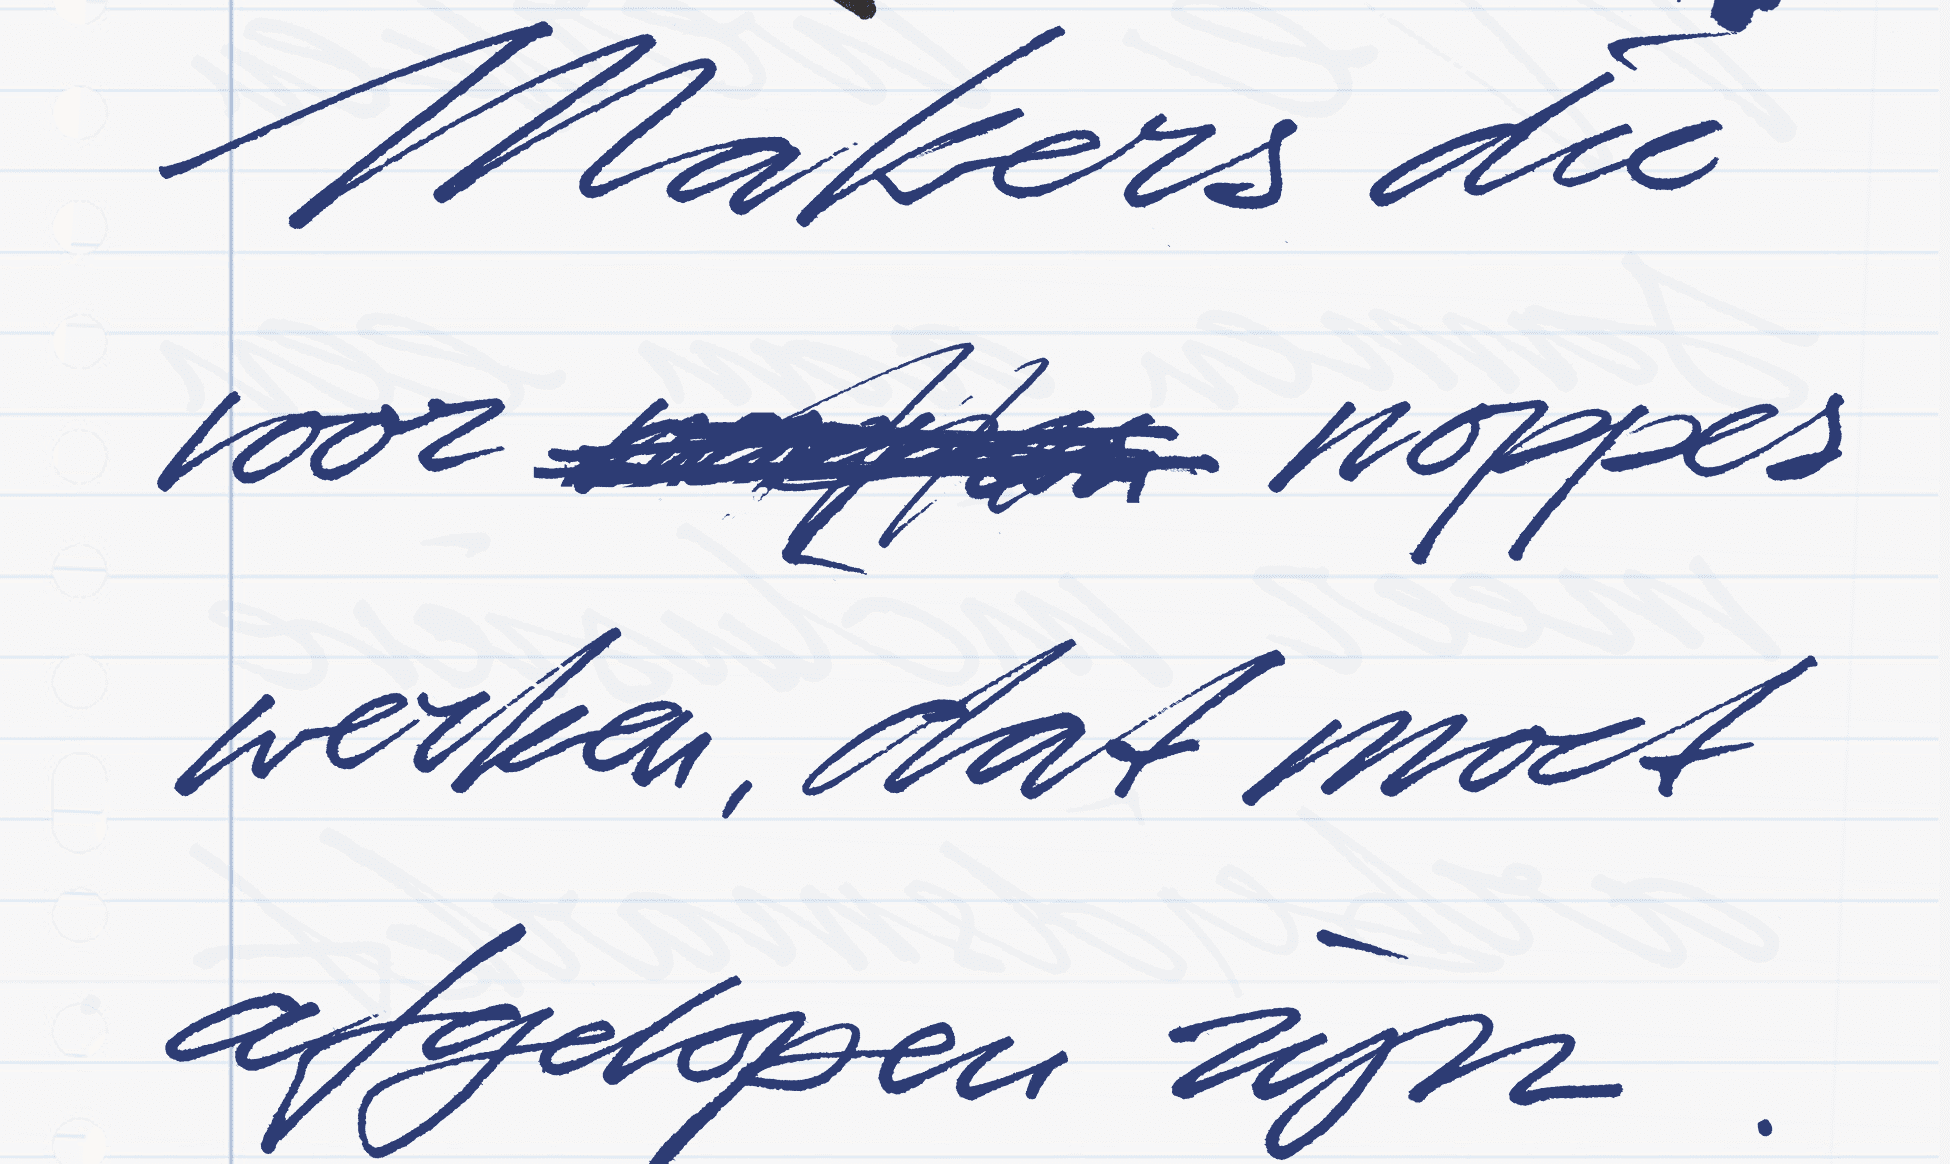 Makers die
voor noppes
werken, dat moet
afgelopen zijn.